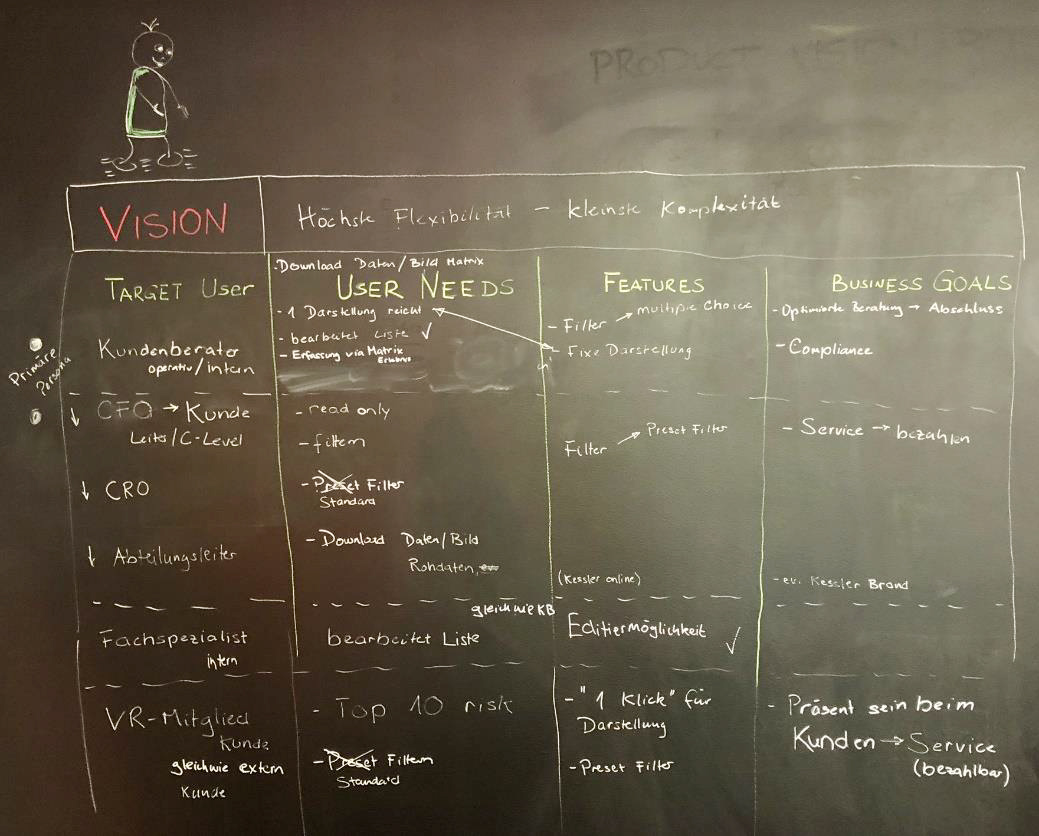 PRODUCT VISION
VISION
Höchste Flexibilität – kleinste Komplexität
TARGET USER
- Download Daten/Bild Matrix
USER NEEDS
FEATURES
BUSINESS GOALS
Primäre
Persona
Kundenberater
operativ/intern
- 1 Darstellung reicht
- bearbeitet Liste ✓
- Erfassung via Matrix
Erlebnis
- Filter → multiple Choice
- Fixe Darstellung
- Optimierte Beratung → Abschluss
- Compliance
↓ CFO → Kunde
Leiter/C-Level
↓ CRO
↓ Abteilungsleiter
- read only
- filtern
- Preset Filter
Standard
- Download Daten/Bild
Rohdaten,
Filter → Preset Filter
(Kessler online)
- Service → bezahlen
- ev. Kessler Brand
Fachspezialist
intern
gleich wie KB
bearbeitet Liste
Editiermöglichkeit ✓
VR-Mitglied
Kunde
gleich wie extern
Kunde
- Top 10 risk
- Preset Filtern
Standard
- "1 Klick" für
Darstellung
- Preset Filter
- Präsent sein beim
Kunden → Service
(bezahlbar)